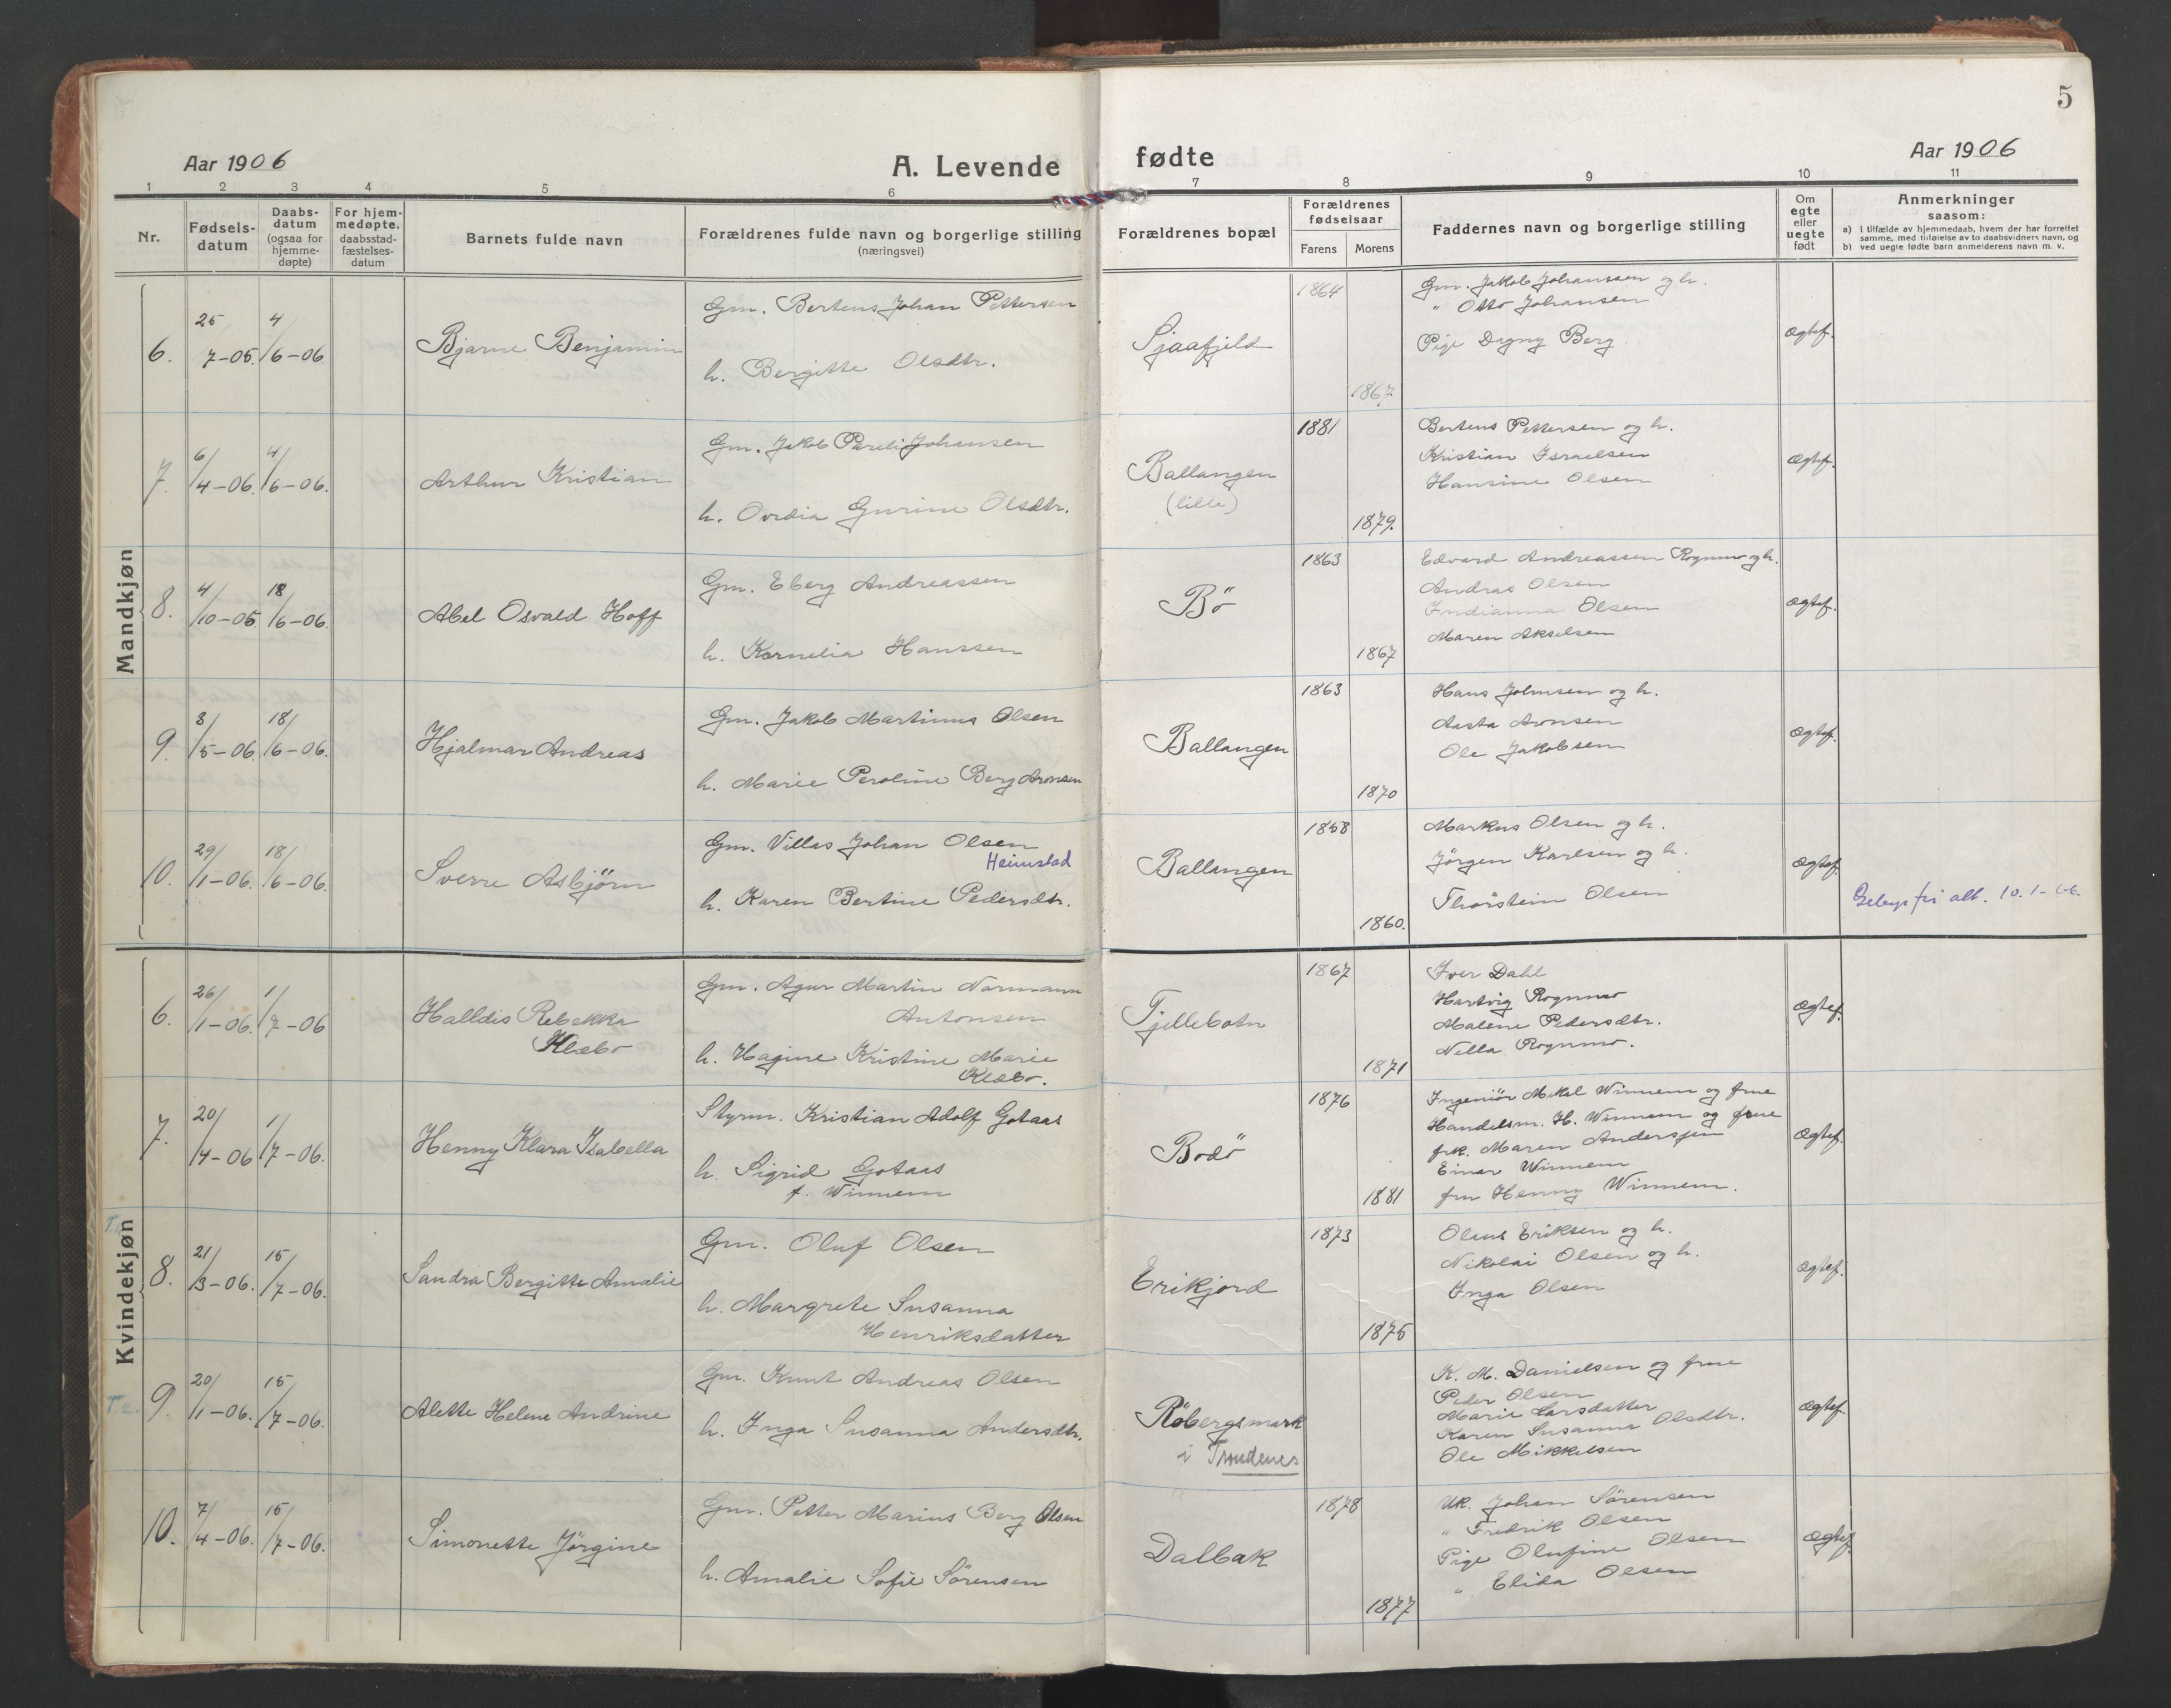 5
Aar 1906
A. Levende fødte
Aar 1906
1 2 3 4 5 6 7 8 9 10 11
Nr.
Fødsels-
datum
Daabs-
datum
(ogsaa for
hjemme-
døpte)
For hjem-
medøpte,
daabsstad-
fæstelses-
datum
Barnets fulde navn
Forældrenes fulde navn og borgerlige stilling
(næringsvei)
Forældrenes bopæl
Forældrenes
fødselsaar
Farens Morens
Faddernes navn og borgerlige stilling
Om
egte
eller
uegte
født
Anmerkninger
saasom:
a) i tilfælde av hjemmedaab, hvem der har forrettet
samme, med tilføielse av to daabsvidners navn, og
b) ved uegte fødte barn anmelderens navn m. v.
Mandkjøn
6. 25/7-05. 4/6-06 Bjarne Benjamin
Gm. Bertens Johan Pettersen
h. Bergitte Olsdtr.
Sjaafjeld
1864
1867
Gm. Jakob Johanssen og h.
" Otto Johansen
Pige Dagny Berg
Ægtef.
7. 6/4-06. 4/6-06. Arthur Kristian
Gm. Jakob Pareli Johansen
h. Ovedia Gurine Olsdtr.
Ballangen
(lille)
1881
1879.
Bertens Pettersen og h.
Kristian Israelsen
Hansine Olsen
Ægtef.
8. 4/10-05 18/6-06. Abel Osvald Hoff
Gm. Eberg Andreassen
h. Kornelia Hanssen
Bö
1863
1867
Edvard Andreassen Rognmo og h.
Andras Olsen
Indianna Olsen
Maren Akselsen
Ægtef.
9. 8/5-06. 18/6-06. Hjalmar Andreas
Gm. Jakob Martinus Olsen
h. Marie Peroline Berg Aronsen
Ballangen
1863
1870
Hans Johnsen og h.
Aasta Aronsen
Ole Jakobsen
Ægtef.
10. 29/1-06. 18/6-06. Sverre Asbjörn
Gm. Villas Johan Olsen
Heimstad
h. Karen Bertine Pedersdtr.
Ballangen
1858
1860.
Markus Olsen og h.
Jörgen Karlsen og h.
Thorstein Olsen
Ægtef.
fri att. 10.1-66.
Kvindekjøn
6. 26/1-06. 1/7-06 Halldis Rebekka
Klæbo
Gm. Agur Martin Normann
Antonsen
h. Hagine Kristine Marie
Klæbo.
Tjellebotn
1867
1871
Iver Dahl
Hartvig Rognmo
Malene Pedersdtr.
Nella Rognmo.
Ægtef.
7. 20/4-06 1/7-06. Henny Klara Isabella
Styrm. Kristian Adolf Gotaas
h. Sigrid Gotaas
f. Winnem
Bodö
1876
1881
Ingeniör Mikal Winnem og frue
Handelsm. H. Winnem og frue
frk. Maren Anderssen
Einar Winnem
fru Henny Winnem.
Ægtef.
T.1.
8. 21/3-06. 15/7-06. Sandra Bergitte Amalie
Gm. Oluf Olsen
h. Margrete Susanna
Henriksdatter
Erikjord
1873
1875
Olaus Eriksen og h.
Nikolai Olsen og h.
Inga Olsen
Ægtef.
T.2.
9. 20/1-06. 15/7-06. Alette Helene Andrine
Gm. Knut Andreas Olsen
h. Inga Susanna Andersdtr.
Röbergsmark
i Trondenes
K. M. Danielsen og frue
Peder Olsen
Marie Larsdatter
Karen Susanna Olsdtr.
Ole Mikkelsen
Ægtef.
10. 7/4-06. 15/7-06. Simonette Jörgine
Gm. Petter Marius Berg Olsen
h. Amalie Sofie Sörensen
Dalbak
1878
1877
Uk. Johan Sörensen
" Fredrik Olsen
Pige Olufine Olsen
" Elida Olsen
Ægtef.